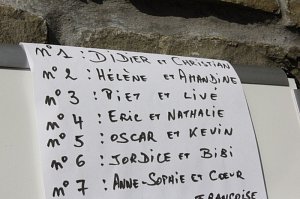 n° 1 : DIDIER ET CHRISTIAN
n° 2 : HÉLÈNE ET AMANDINE
n° 3 : PIET ET LIVÉ
n° 4 : ERIC ET NATHALIE
n° 5 : OSCAR ET KEVIN
n° 6 : JORDICE ET BIBI
n° 7 : ANNE-SOPHIE ET CŒUR
FRANÇOISE